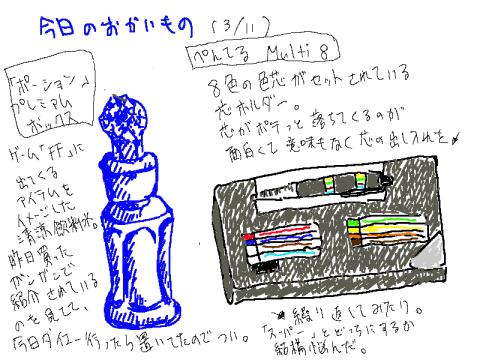 今日のおかいもの (3/11)
「ポーション」
プレミアム
ボックス
ゲーム「FF」に
出てくる
アイテムを
イメージした
清涼飲料水。
昨日買った
ガンガンで
紹介されている
のを見てて、
今日ダイエー行ったら置いてたのでつい。
ぺんてる Multi 8
8色の色芯がセットされている
芯ホルダー。
芯がポテっと落ちてくるのが
面白くて意味もなく芯の出し入れを
繰り返してみたり。
「スーパー」とどっちにするか
結構悩んだ。